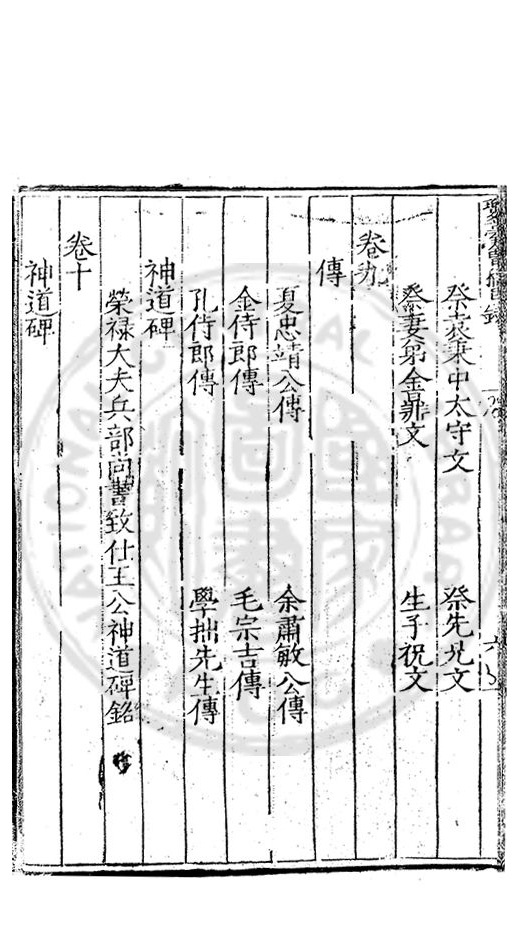 祭袁秉中太守文　祭先兄文
祭妻弟金鼐文　生子祝文
卷九
傳
夏忠靖公傳　余肅敏公傳
金侍郎傳　毛宗吉傳
孔侍郎傳　學拙先生傳
神道碑
榮祿大夫兵部尚書致仕王公神道碑銘
卷十
神道碑